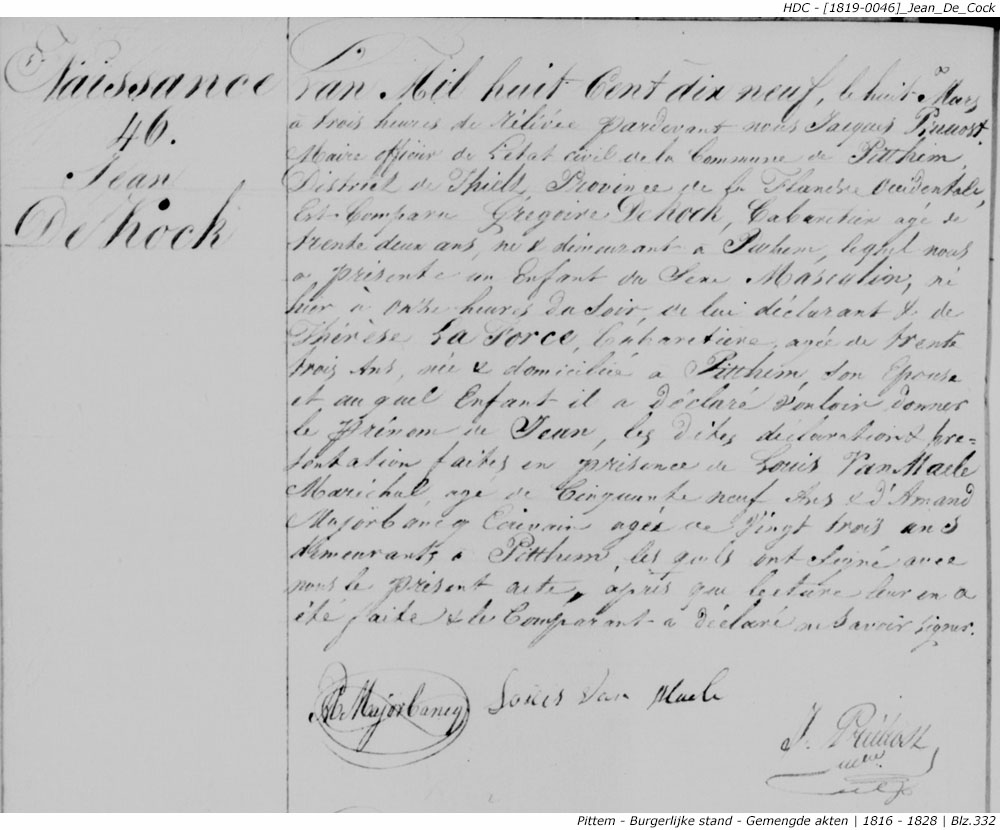 HDC - [1819-0046]_Jean_De_Cock
Naissance
46.
Jean
DeKock
L'an Mil huit Cent dix neuf, le huit Mars
à trois heures de rélévée pardevant nous Jacques Pruuost
Maire officier de l'etat civil de la Commune de Pitthem,
District de Thielt, Province de la Flandre Occidentale,
Est Comparu Grégoire DeKock, Cabaretier agé de
trente deux ans, né & demeurant à Pitthem, lequel nous
a présenté un Enfant du Sexe Masculin, né
hier à onze heures du soir, de lui déclarant & de
Thérèse La Force, Cabaretière, agée de trente
trois Ans, née & domiciliée à Pitthem, son Epouse
et auquel Enfant il a déclaré vouloir donner
le prénom de Jean, les dites déclaration & pré=
sentation faites en présence de Louis Van Maele
Maréchal, agé de Cinquante neuf Ans & d'Amand
Majorbancq Ecrivain agée de Vingt trois ans
demeurants à Pitthem, les quels ont signé avec
nous le présent acte, après que lecture leur en a
été faite & le Comparant a déclaré ne savoir signer.
Majorbancq Louis Van Maele
J. Pruuost
Pittem - Burgerlijke stand - Gemengde akten | 1816 - 1828 | Blz.332